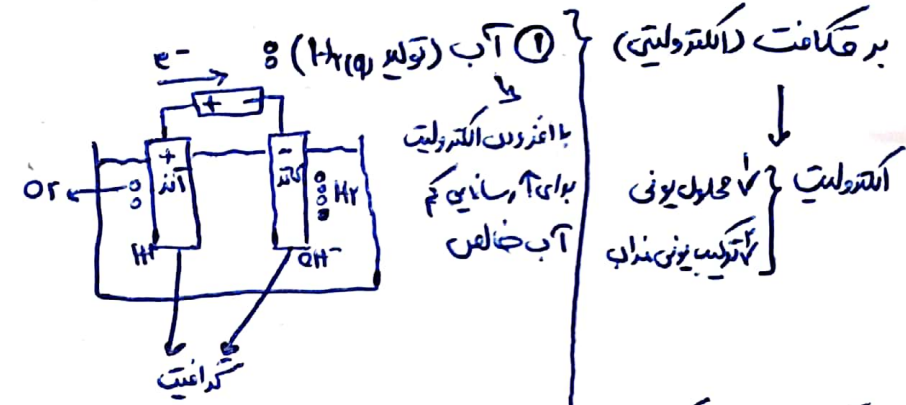 برقکافت (الکترولیتی)
الکترولیت
۱) محلول یونی
۲) ترکیب یونی مذاب
① آب (تولید H۲(g)) :
با افزودن الکترولیت
برای ↑ رسانایی کم
آب خالص
e⁻
+ −
+ آند
− کاتد
O۲
H۲
H⁺
OH⁻
گرافیت